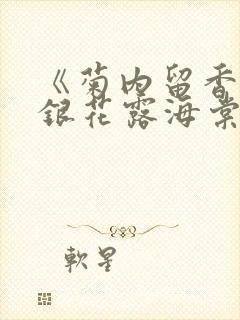 《菊内留香
銀花露海棠
軟星